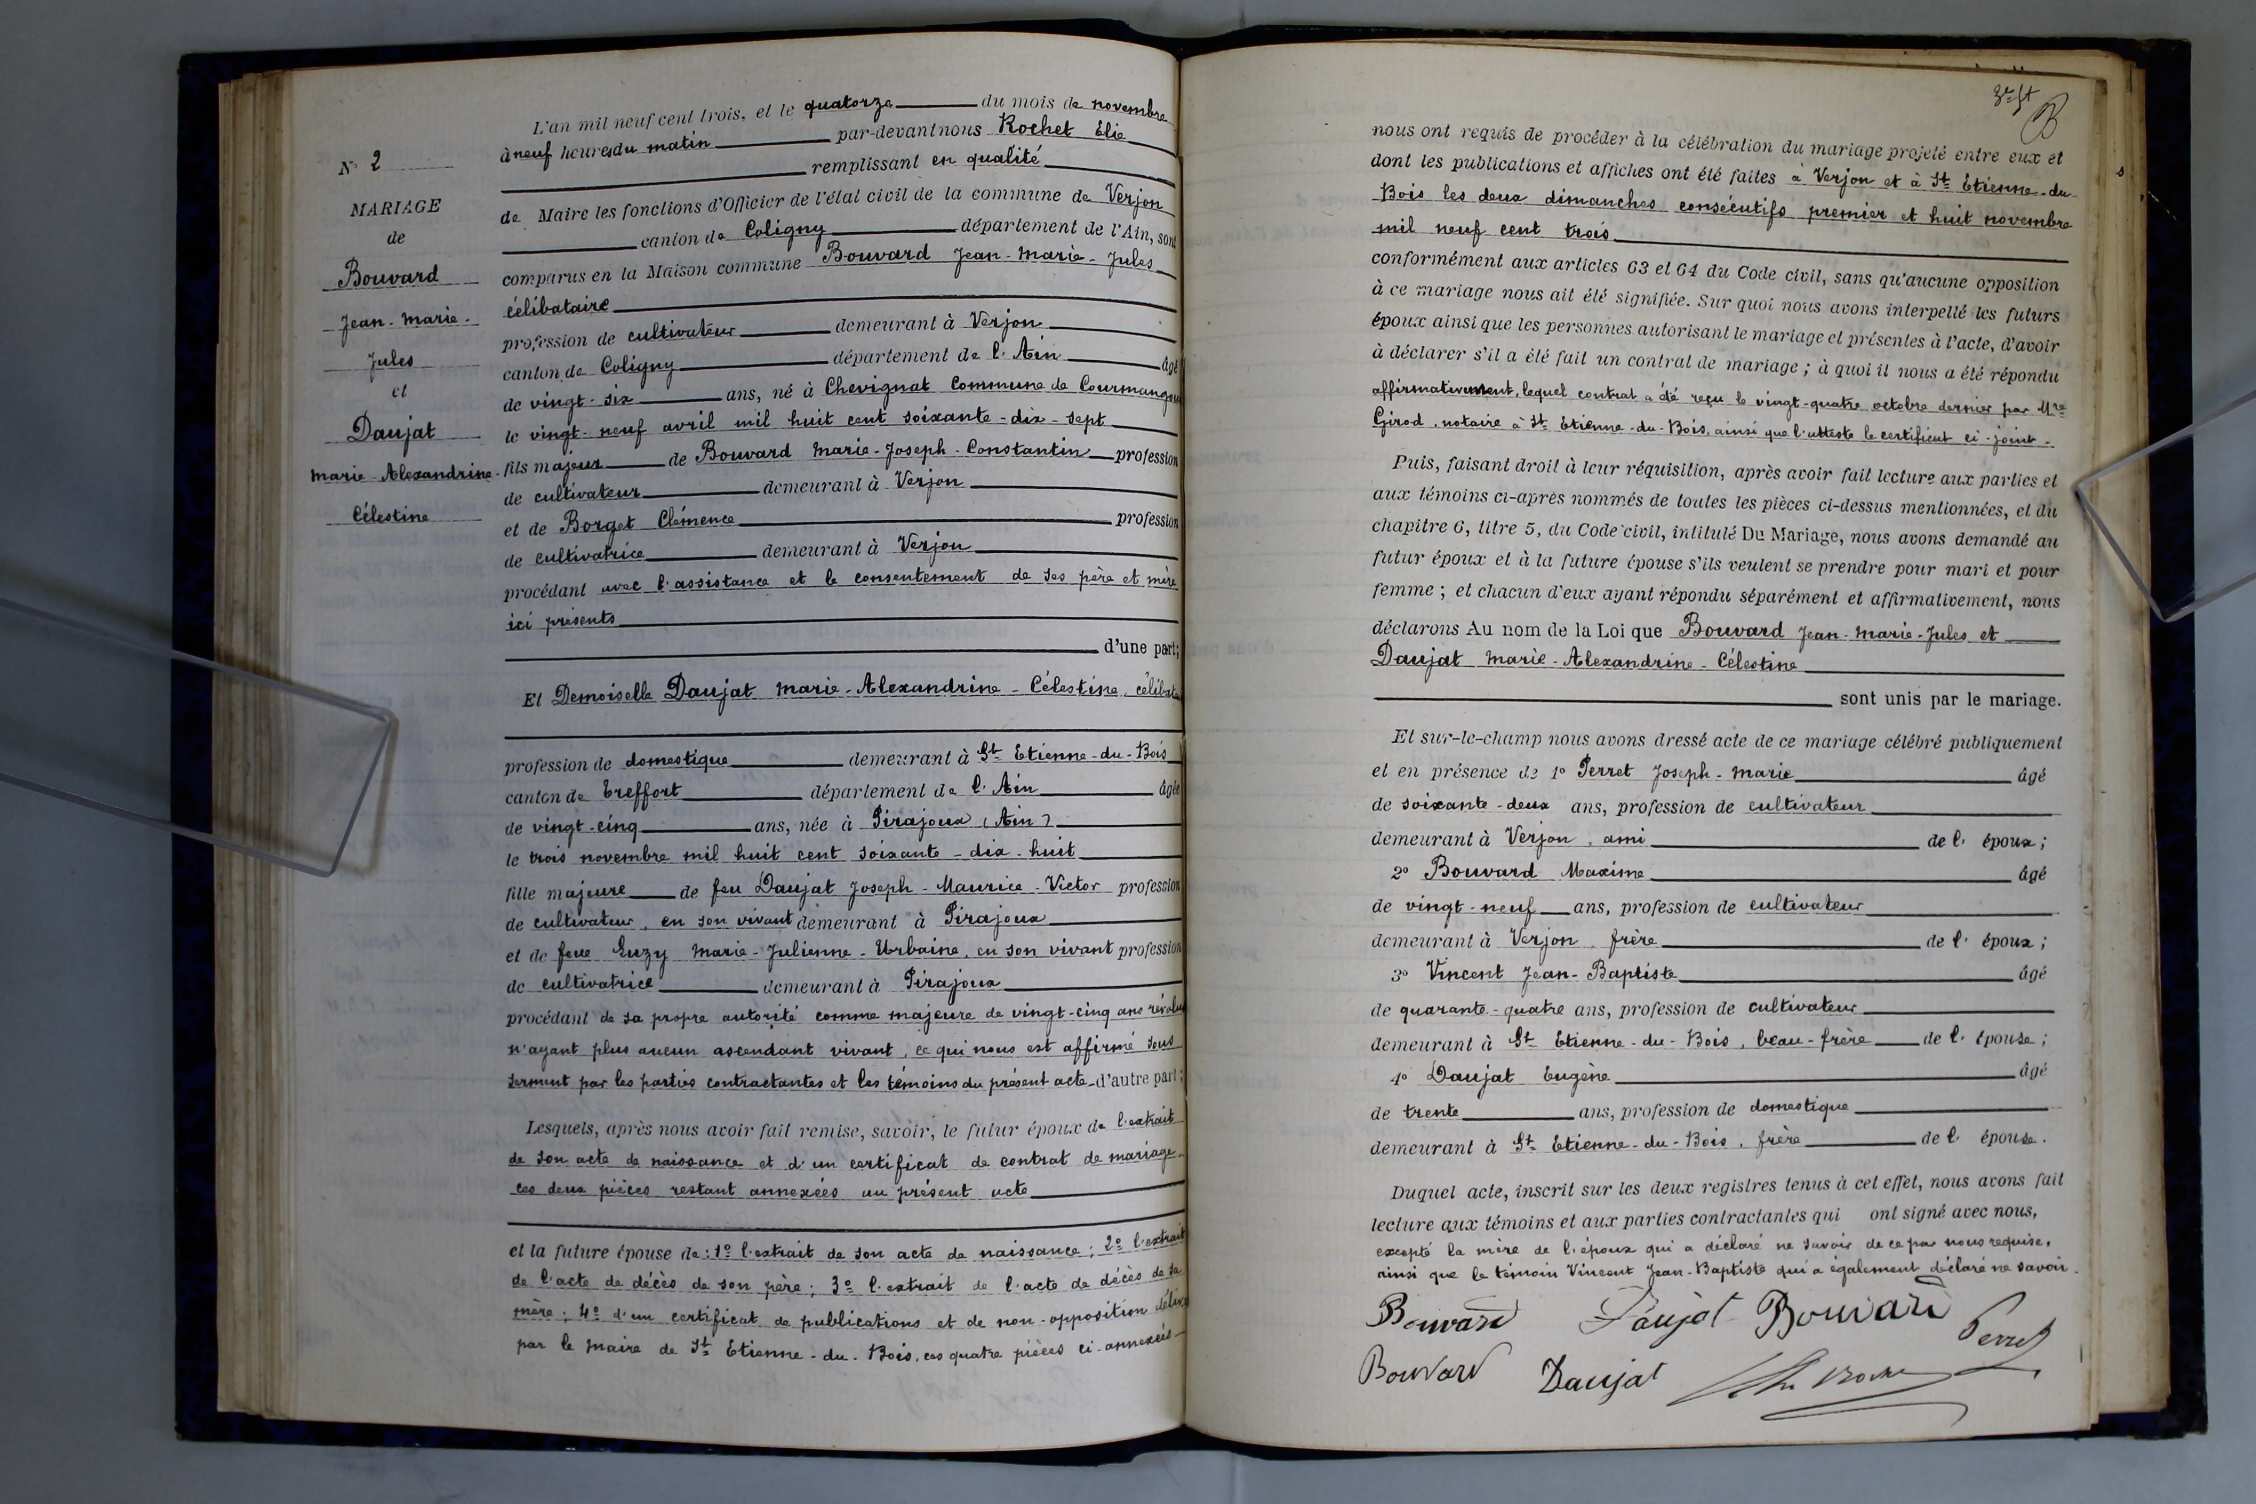 N° 2
MARIAGE
de
Bouvard
Jean-Marie-
Jules
et
Daujat
Marie-Alexandrine-
Célestine
L'an mil neuf cent trois, et le quatorze du mois de novembre
à neuf heures du matin par-devant nous Rochet Elie
remplissant en qualité
de Maire les fonctions d'Officier de l'état civil de la commune de Verjon
canton de Coligny département de l'Ain, sont
comparus en la Maison commune Bouvard Jean-Marie-Jules
célibataire
profession de cultivateur demeurant à Verjon
canton de Coligny département de l'Ain âgé
de vingt-six ans, né à Chevignat Commune de Courmangoux
le vingt-neuf avril mil huit cent soixante-dix-sept
fils majeur de Bouvard Marie-Joseph-Constantin profession
de cultivateur demeurant à Verjon
et de Borget Clémence profession
de cultivatrice demeurant à Verjon
procédant avec l'assistance et le consentement de ses père et mère
ici présents
d'une part;
Et Demoiselle Daujat Marie-Alexandrine-Célestine, célibataire
profession de domestique demeurant à St Etienne-du-Bois
canton de Treffort département de l'Ain âgée
de vingt-cinq ans, née à Pirajoux (Ain)
le trois novembre mil huit cent soixante-dix-huit
fille majeure de feu Daujat Joseph-Maurice-Victor profession
de cultivateur, en son vivant demeurant à Pirajoux
et de feue Guzy Marie-Julienne-Urbaine, en son vivant profession
de cultivatrice demeurant à Pirajoux
procédant de sa propre autorité comme majeure de vingt-cinq ans révolus
n'ayant plus aucun ascendant vivant, ce qui nous est affirmé sous
serment par les parties contractantes et les témoins du présent acte - d'autre part;
Lesquels, après nous avoir fait remise, savoir, le futur époux de l'extrait
de son acte de naissance et d'un certificat de contrat de mariage
ces deux pièces restant annexées au présent acte
et la future épouse de: 1° l'extrait de son acte de naissance; 2° l'extrait
de l'acte de décès de son père; 3° l'extrait de l'acte de décès de sa
mère; 4° d'un certificat de publications et de non-opposition délivré
par le maire de St Etienne-du-Bois, ces quatre pièces ci-annexées
nous ont requis de procéder à la célébration du mariage projeté entre eux et
dont les publications et affiches ont été faites à Verjon et à St Etienne-du-
Bois les deux dimanches consécutifs premier et huit novembre
mil neuf cent trois
conformément aux articles 63 et 64 du Code civil, sans qu'aucune opposition
à ce mariage nous ait été signifiée. Sur quoi nous avons interpellé les futurs
époux ainsi que les personnes autorisant le mariage et présentes à l'acte, d'avoir
à déclarer s'il a été fait un contrat de mariage; à quoi il nous a été répondu
affirmativement, lequel contrat a été reçu le vingt-quatre octobre dernier par Mre
Girod, notaire à St Etienne-du-Bois, ainsi que l'atteste le certificat ci-joint.
Puis, faisant droit à leur réquisition, après avoir fait lecture aux parties et
aux témoins ci-après nommés de toutes les pièces ci-dessus mentionnées, et du
chapitre 6, titre 5, du Code civil, intitulé Du Mariage, nous avons demandé au
futur époux et à la future épouse s'ils veulent se prendre pour mari et pour
femme; et chacun d'eux ayant répondu séparément et affirmativement, nous
déclarons Au nom de la Loi que Bouvard Jean-Marie-Jules et
Daujat Marie-Alexandrine-Célestine
sont unis par le mariage.
Et sur-le-champ nous avons dressé acte de ce mariage célébré publiquement
et en présence de 1° Perret Joseph-Marie âgé
de soixante-deux ans, profession de cultivateur
demeurant à Verjon, ami de l'époux;
2° Bouvard Maxime âgé
de vingt-neuf ans, profession de cultivateur
demeurant à Verjon frère de l'époux;
3° Vincent Jean-Baptiste âgé
de quarante-quatre ans, profession de cultivateur
demeurant à St Etienne-du-Bois, beau-frère de l'épouse;
4° Daujat Eugène âgé
de trente ans, profession de domestique
demeurant à St Etienne-du-Bois, frère de l'épouse.
Duquel acte, inscrit sur les deux registres tenus à cet effet, nous avons fait
lecture aux témoins et aux parties contractantes qui ont signé avec nous,
excepté la mère de l'époux qui a déclaré ne savoir de ce par nous requise,
ainsi que le témoin Vincent Jean-Baptiste qui a également déclaré ne savoir.
Bouvard Daujat Bouvard Perret
Bouvard Daujat